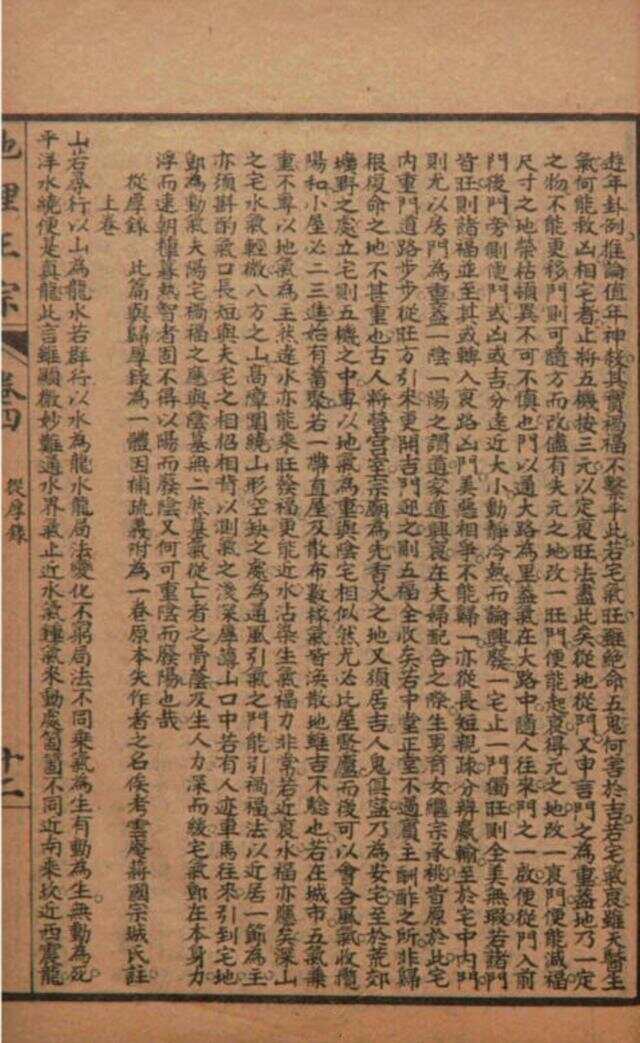 遊年卦例推論值年神敘其實禍福不繫乎此若宅氣旺雖絕命五鬼何害於吉若宅氣衰雖天醫生
氣何能救凶相宅者止將五機按三元以定衰旺法盡此矣從地從門又申言門之為重蓋地乃一定
之物不能更移門則可隨方而改儘有失元之地改一旺門便能起衰得元之地改一衰門便能減福
尺寸之地榮枯頓異不可不慎也門以通大路為里蓋氣在大路中隨人往來門之一啟便從門入前
門後門旁側便門或凶或吉分遠近大小動靜冷熱而論興發一宅止一門獨旺則全美無瑕若諸門
皆旺則諸福並至其或轉入衰路凶門美惡相爭不能歸一亦從長短親疎分辨嬴輸至於宅中內門
則尤以房門為重蓋一陰一陽之謂道家道興衰在夫婦配合之際生男育女繼宗承祧皆原於此宅
內重門道路步步從旺方引來更開吉門迎之則五福全收矣若中堂正堂不過賓主酬酢之所非歸
根復命之地不甚重也古人將營宮室宗廟為先香火之地又須居吉人鬼俱寧乃為安宅至於荒郊
壙野之處立宅則五機之中專以地氣為重與陰宅相似然尤必比屋聚廬而後可以會合風氣收攬
陽和小屋必二三進始有蓄聚若一帶直屋及散布數椽氣皆渙散地雖吉不驗也若在城市五氣乘
重不專以地氣為主然逢水亦能乘旺發福更能近水沾染生氣福力非常若近衰水福亦應矣深山
之宅水氣輕微八方之山高障圍繞山形空缺之處為通風引氣之門能引禍福法以近居一節為主
亦須斟酌氣口長短與夫宅之相招相背以測氣之淺深厚薄山口中若有人迹車馬往來引到宅地
卽為動氣夫陽宅禍福之應與陰墓無二然墓氣從亡者之骨蔭及生人力深而緩宅氣卽在本身力
浮而速朝種暮熟智者固不得以陽而廢陰又何可重陰而廢陽也哉
從厚錄　此篇與歸厚錄為一體因補疏義附為一卷原本失作者之名俟考雲庵蔣國宗城氏註
上卷
山若尋行以山為龍水若群行以水為龍水龍局法變化不窮局法不同乘氣為生有動為生無動為死
平洋水繞便是真龍此言雖顯微妙難通水界氣止近水氣鍾氣來動處箇箇不同近向來坎近西震龍
地理正宗　卷四　從厚錄　十二